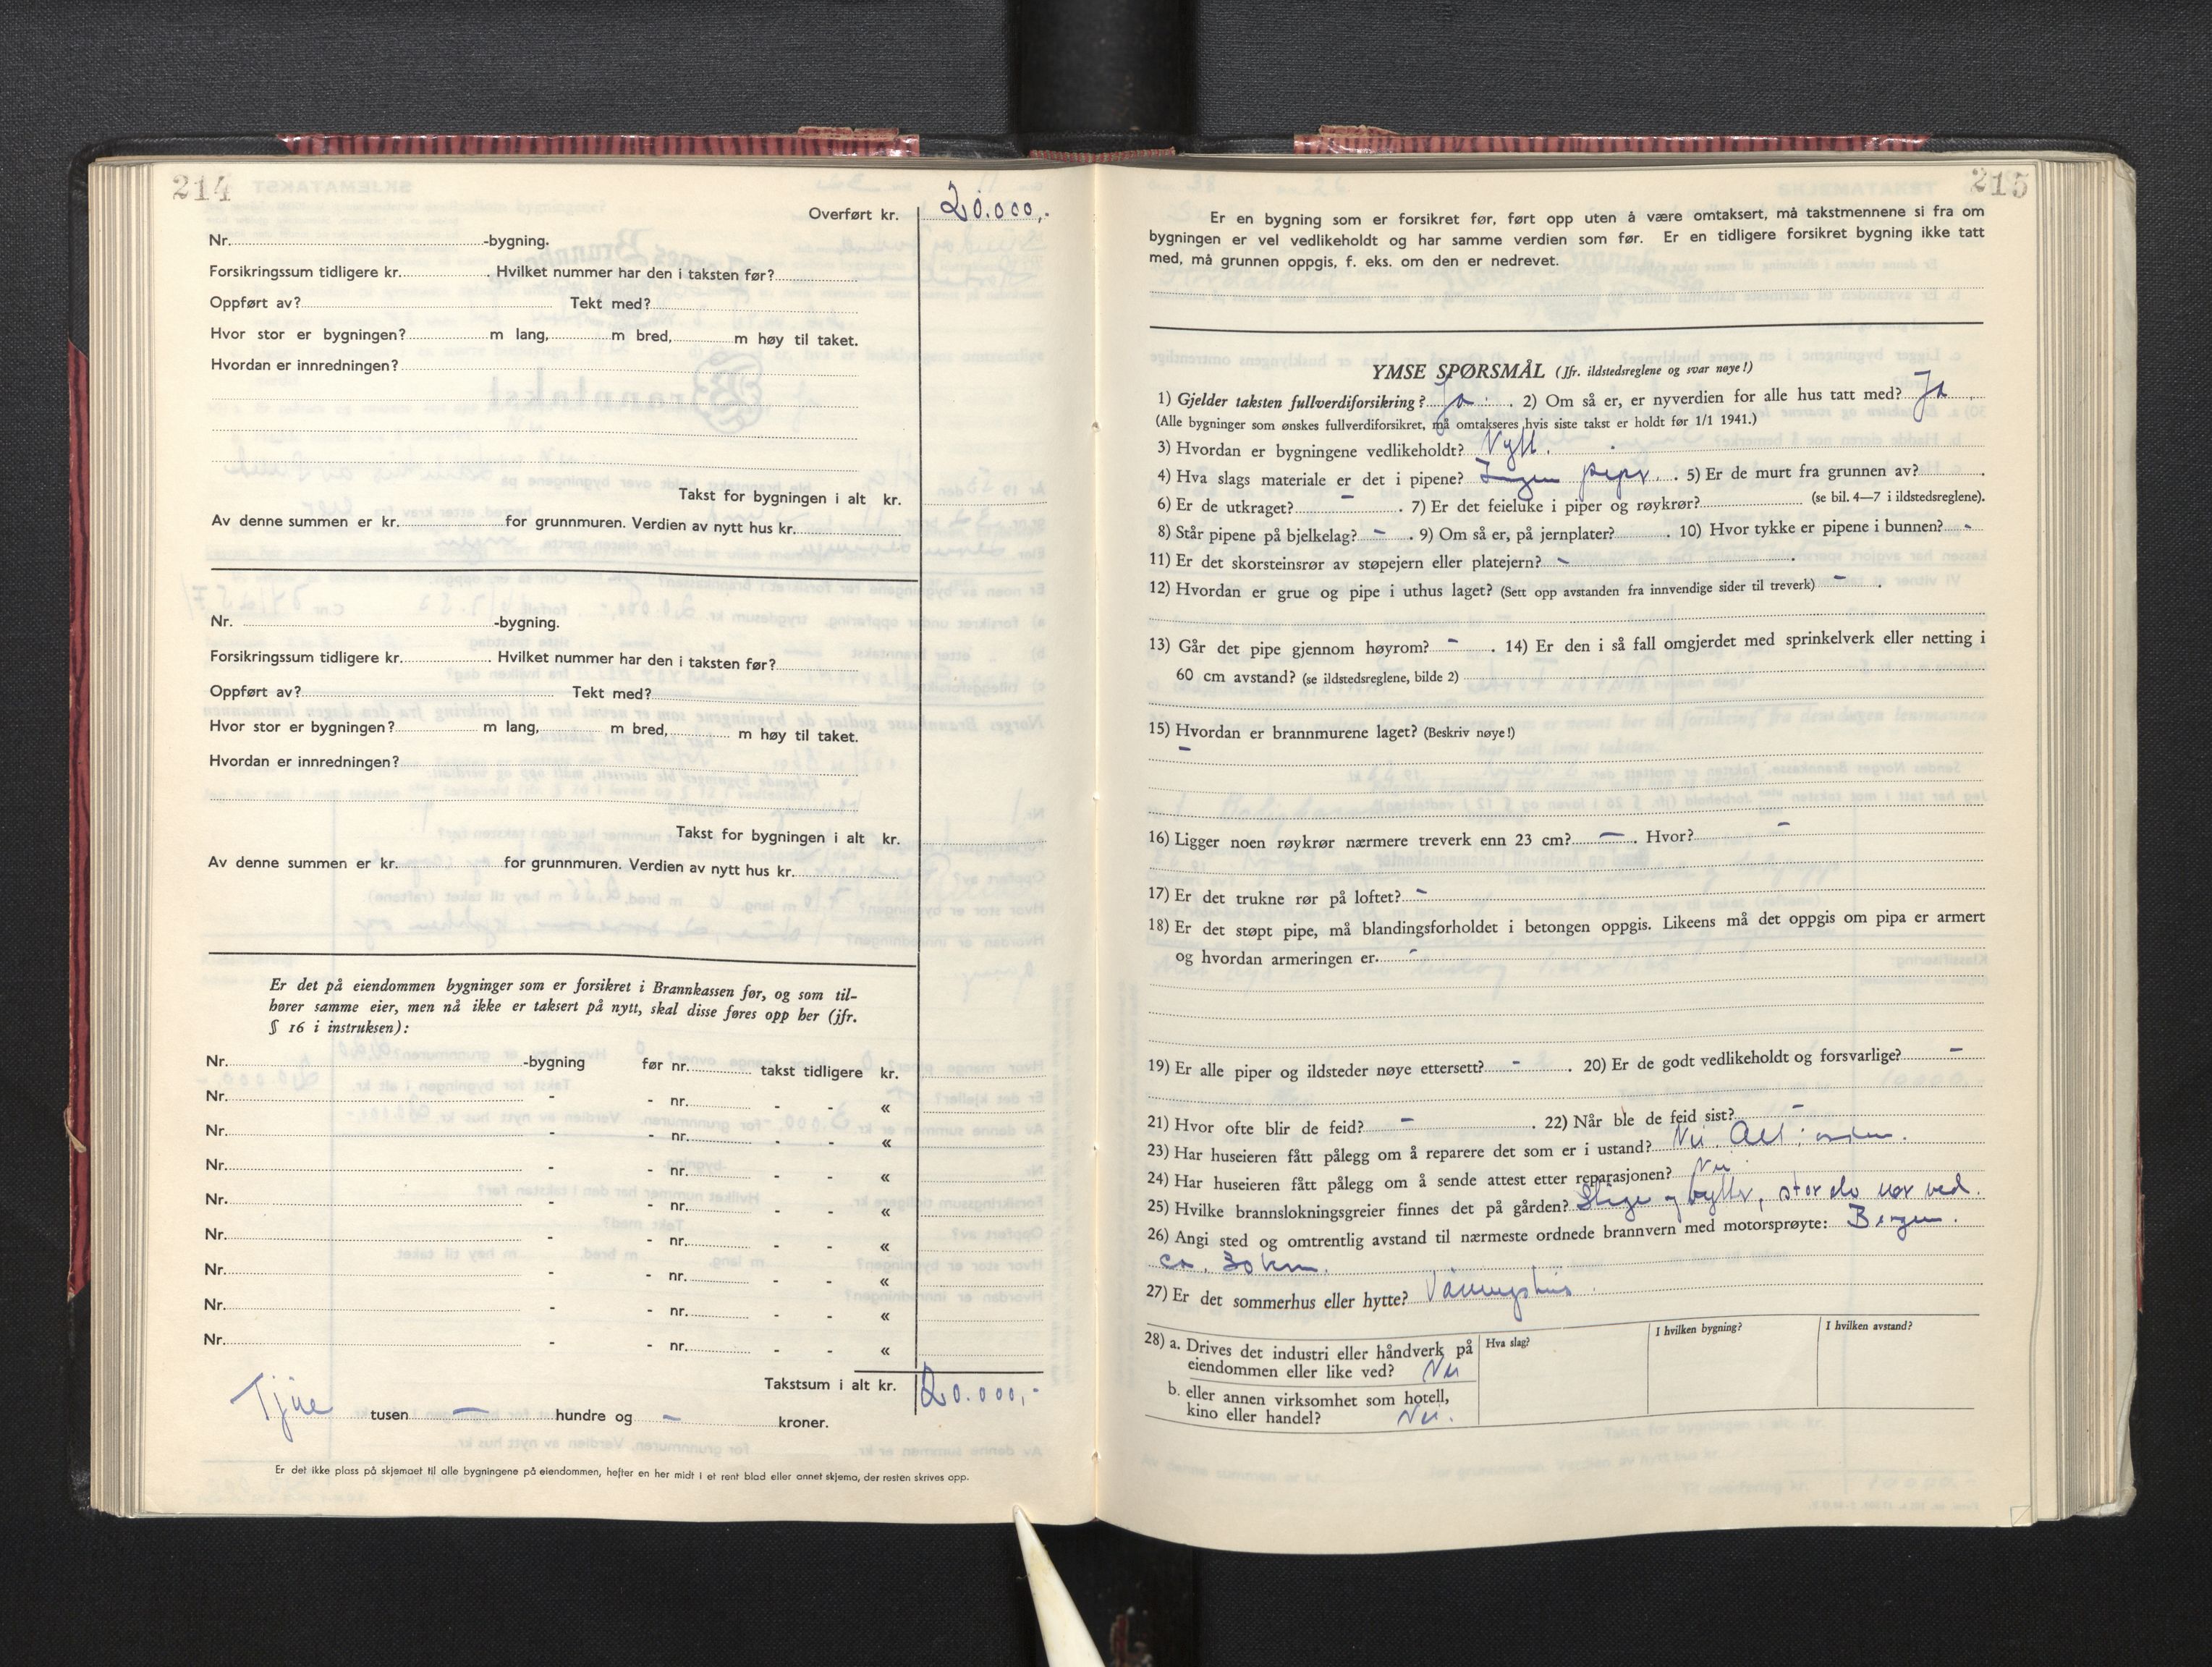 214
Overført kr. 20.000,-
Nr. -bygning.
Forsikringssum tidligere kr. . Hvilket nummer har den i taksten før?
Oppført av? Tekt med?
Hvor stor er bygningen? m lang, m bred, m høy til taket.
Hvordan er innredningen?
Takst for bygningen i alt kr.
Av denne summen er kr. for grunnmuren. Verdien av nytt hus kr.
Nr. -bygning.
Forsikringssum tidligere kr. . Hvilket nummer har den i taksten før?
Oppført av? Tekt med?
Hvor stor er bygningen? m lang, m bred, m høy til taket.
Hvordan er innredningen?
Takst for bygningen i alt kr.
Av denne summen er kr. for grunnmuren. Verdien av nytt hus kr.
Er det på eiendommen bygninger som er forsikret i Brannkassen før, og som til-
hører samme eier, men nå ikke er taksert på nytt, skal disse føres opp her (jfr.
§ 16 i instruksen):
Nr. -bygning før nr. takst tidligere kr.
Nr. - - nr. - - «
Nr. - - nr. - - «
Nr. - - nr. - - «
Nr. - - nr. - - «
Nr. - - nr. - - «
Nr. - - nr. - - «
Nr. - - nr. - - «
Nr. - - nr. - - «
Takstsum i alt kr. 20.000,-
Tjue tusen — hundre og — kroner.
Er det ikke plass på skjemaet til alle bygningene på eiendommen, hefter en her midt i et rent blad eller annet skjema, der resten skrives opp.
215
Er en bygning som er forsikret før, ført opp uten å være omtaksert, må takstmennene si fra om
bygningen er vel vedlikeholdt og har samme verdien som før. Er en tidligere forsikret bygning ikke tatt
med, må grunnen oppgis, f. eks. om den er nedrevet.
YMSE SPØRSMÅL (Jfr. ildstedsreglene og svar nøye!)
1) Gjelder taksten fullverdiforsikring? Ja . 2) Om så er, er nyverdien for alle hus tatt med? Ja
(Alle bygninger som ønskes fullverdiforsikret, må omtakseres hvis siste takst er holdt før 1/1 1941.)
3) Hvordan er bygningene vedlikeholdt? Nytt.
4) Hva slags materiale er det i pipene? Ingen piper. 5) Er de murt fra grunnen av? .
6) Er de utkraget? - . 7) Er det feieluke i piper og røykrør? (se bil. 4—7 i ildstedsreglene).
8) Står pipene på bjelkelag? - . 9) Om så er, på jernplater? . 10) Hvor tykke er pipene i bunnen? -
11) Er det skorsteinsrør av støpejern eller platejern? - .
12) Hvordan er grue og pipe i uthus laget? (Sett opp avstanden fra innvendige sider til treverk) - .
13) Går det pipe gjennom høyrom? - . 14) Er den i så fall omgjerdet med sprinkelverk eller netting i
60 cm avstand? (se ildstedsreglene, bilde 2)
15) Hvordan er brannmurene laget? (Beskriv nøye!)
-
16) Ligger noen røykrør nærmere treverk enn 23 cm? — . Hvor? -
17) Er det trukne rør på loftet? -
18) Er det støpt pipe, må blandingsforholdet i betongen oppgis. Likeens må det oppgis om pipa er armert
og hvordan armeringen er. -
19) Er alle piper og ildsteder nøye ettersett? - . 20) Er de godt vedlikeholdt og forsvarlige? -
21) Hvor ofte blir de feid? - . 22) Når ble de feid sist? -
23) Har huseieren fått pålegg om å reparere det som er i ustand? Nei. Alt i orden.
24) Har huseieren fått pålegg om å sende attest etter reparasjonen? Nei
25) Hvilke brannslokningsgreier finnes det på gården? Stige og bytter, stor elv nær ved.
26) Angi sted og omtrentlig avstand til nærmeste ordnede brannvern med motorsprøyte: Bergen.
ca. 30 km.
27) Er det sommerhus eller hytte? Våningshus
28) a. Drives det industri eller håndverk på
eiendommen eller like ved? Nei
b. eller annen virksomhet som hotell,
kino eller handel? Nei.
Hva slag?
I hvilken bygning?
I hvilken avstand?